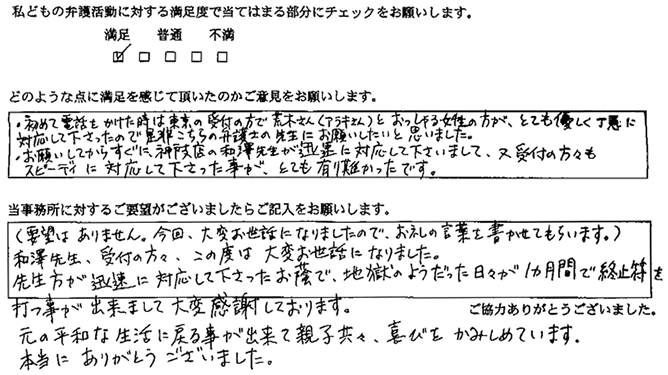 私どもの弁護活動に対する満足度で当てはまる部分にチェックをお願いします。
満足 普通 不満
どのような点に満足を感じて頂いたのかご意見をお願いします。
・初めて電話をかけた時は東京の受付の方で荒木さん(アラキさん)とおっしゃる女性の方が、とても優しく丁寧に
対応して下さったので是非こちらの弁護士の先生にお願いしたいと思いました。
・お願いしてからすぐに、神戸店の和澤先生が迅速に対応して下さいまして、又受付の方々も
スピーディに対応して下さった事が、とても有り難かったです。
当事務所に対するご要望がございましたらご記入をお願いします。
(要望はありません。今回、大変お世話になりましたので、お礼の言葉を書かせてもらいます。)
和澤先生、受付の方々、この度は大変お世話になりました。
先生方が迅速に対応して下さったお蔭で、地獄のようだった日々が1ヵ月間で終止符を
打つ事が出来まして大変感謝しております。
ご協力ありがとうございました。
元の平和な生活に戻る事が出来て親子共々、喜びをかみしめています。
本当にありがとうございました。